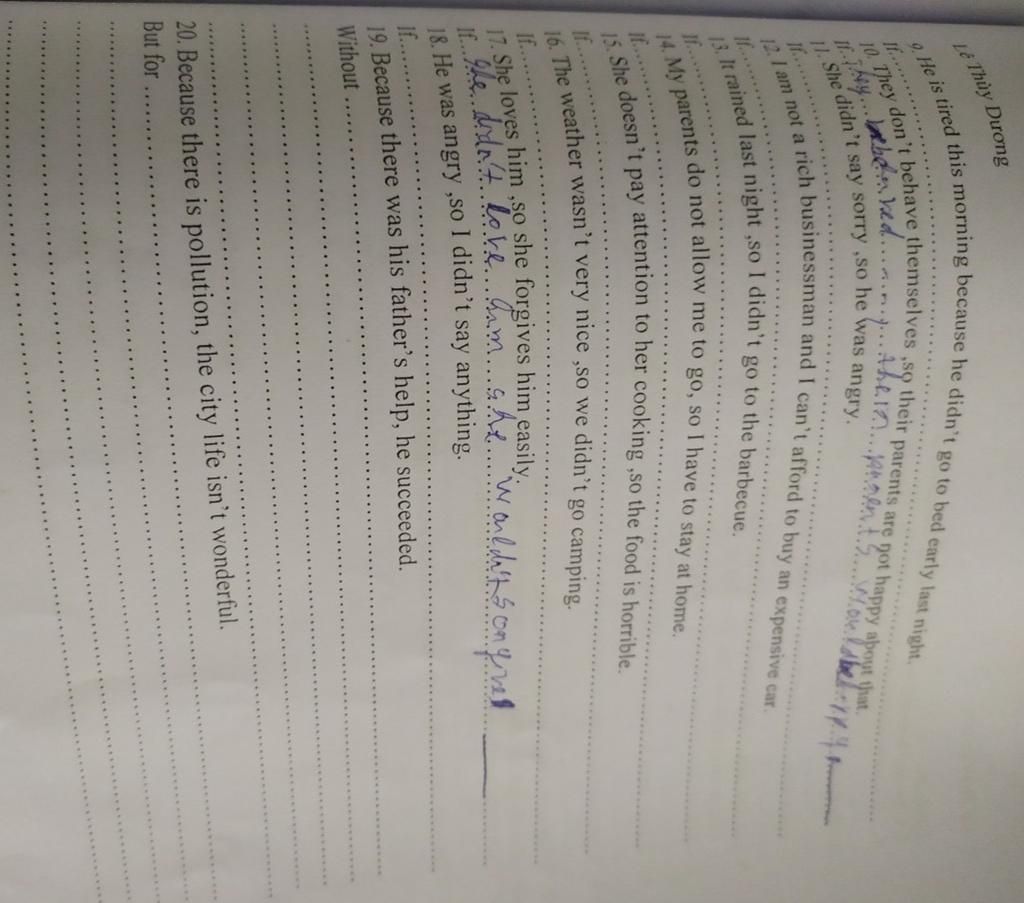 Lê Thùy Dương
9. He is tired this morning because he didn't go to bed early last night.
If..........
10. They don't behave themselves ,so their parents are not happy about that.
If.. They behaved parents would
11. She didn't say sorry ,so he was angry.
If..........
12. I am not a rich businessman and I can't afford to buy an expensive car.
If..........
13. It rained last night ,so I didn't go to the barbecue.
If..........
14. My parents do not allow me to go, so I have to stay at home.
If..........
15. She doesn't pay attention to her cooking ,so the food is horrible.
If..........
16. The weather wasn't very nice ,so we didn't go camping.
If..........
17. She loves him ,so she forgives him easily.
If... She didn't love him she wouldn't
18. He was angry ,so I didn't say anything.
If..........
19. Because there was his father's help, he succeeded.
Without ..........
20. Because there is pollution, the city life isn't wonderful.
But for ..........